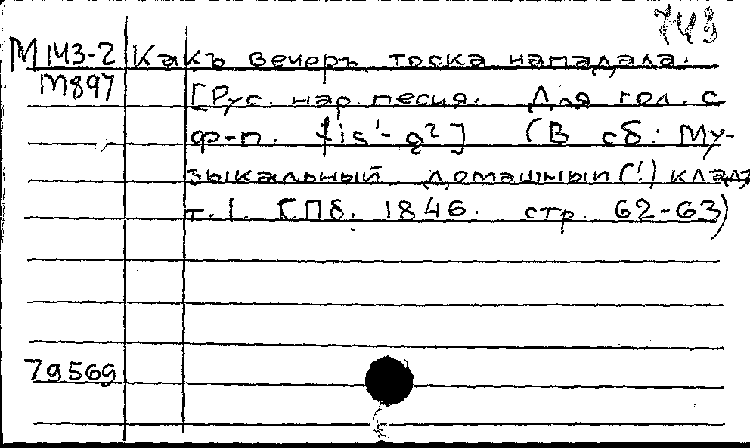 743
М 143-2 Какъ вечеръ тоска нападала.
М897 [Рус. нар. песня. Для гол. с
ф-п. fis¹-g²] (В сб: Му-
зыкальный домашный (!) клад,
т. I. СПб. 1846. стр. 62-63)
79569